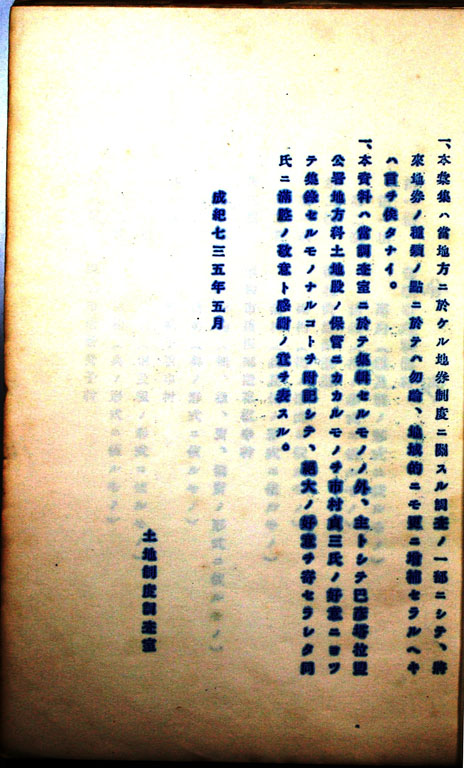 一、本彙集ハ當地方ニ於ケル地券制度ニ關スル調査ノ一部ニシテ、將
來地券ノ種類ノ點ニ於テハ勿論、地域的ニモ更ニ增補セラルヘキ
ハ言ヲ俟タナイ。
一、本資料ハ當調査室ニ於テ蒐輯セルモノノ外、主トシテ巴彦塔拉盟
公署地方科土地股ノ保管ニカカルモノヲ市村貞三氏ノ好意ニヨツ
テ集錄セルモノナルコトヲ附記シテ、絕大ノ好意ヲ寄セラレタ同
氏ニ滿腔ノ敬意ト感謝ノ意ヲ表スル。
成紀七三五年五月
土地制度調査室